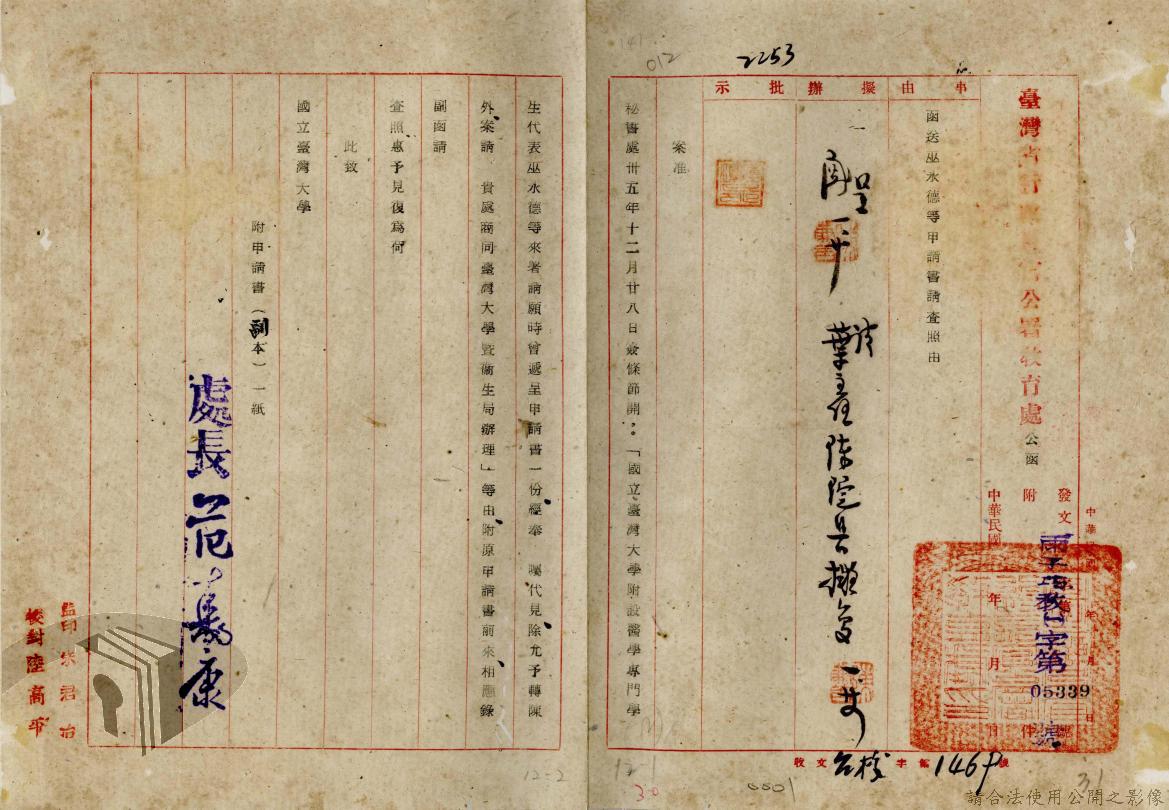 2253
012
臺灣省行政長官公署教育處公函
事由
擬辦
批示
函送巫水德等申請書請查照由
發文
附
件
中華民國 年 月 日
字第
05339
號
陳院長擬復
案准
秘書處卅五年十二月廿八日簽條節開:「國立臺灣大學附設醫學專門學
生代表巫水德等來署請願時曾遞呈申請書一份經奉 囑代見除允予轉陳
外案請 貴處商同臺灣大學暨衛生局辦理」等由附原申請書前來相應錄
副函請
查照惠予見復為何
此致
國立臺灣大學
附申請書(副本)一紙
處長范壽康
監印朱君治
校對陸高平
收文
字第1469號
12-2
12-1
30
31
請合法使用公開之影像